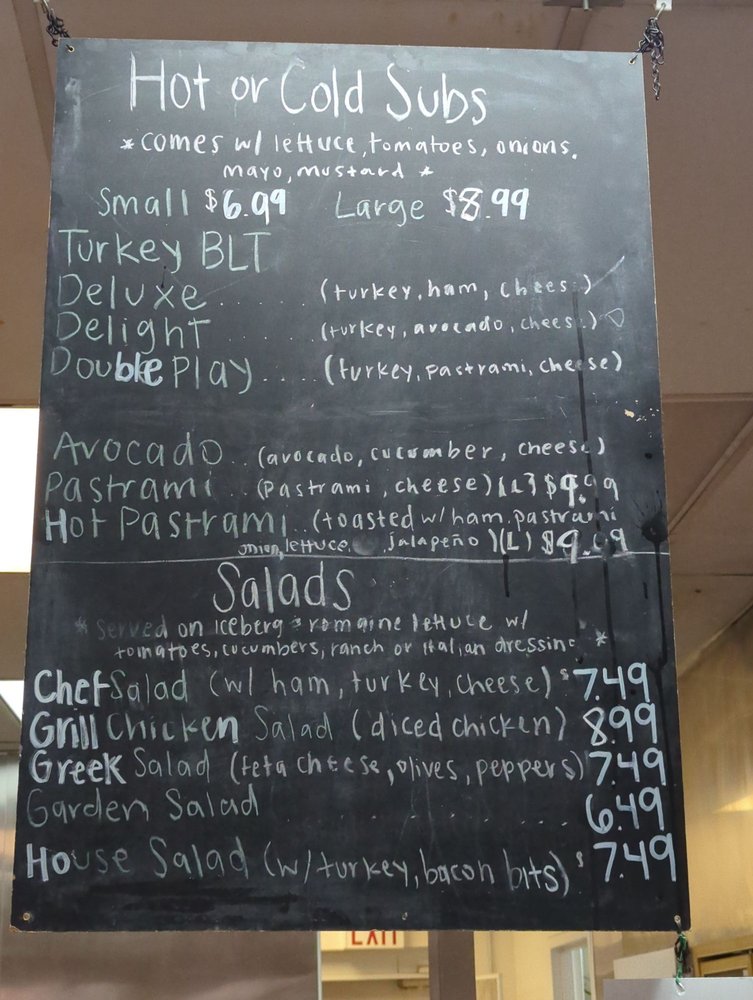 Hot or Cold Subs
*comes w/ lettuce, tomatoes, onions,
mayo, mustard *
Small $6.99 Large $8.99
Turkey BLT
Deluxe ...... (turkey, ham, cheese)
Delight ...... (turkey, avocado, cheese)
Double Play ..... (turkey, pastrami, cheese)
Avocado .. (avocado, cucumber, cheese)
Pastrami .. (Pastrami, cheese) (L) $9.99
Hot Pastrami .. (toasted w/ ham, pastrami
onion, lettuce, jalapeño) (L) $9.09
Salads
* Served on iceberg & romaine lettuce w/
tomatoes, cucumbers, ranch or italian dressing *
Chef Salad (w/ ham, turkey, cheese) $7.49
Grill Chicken Salad (diced chicken) 8.99
Greek Salad (feta cheese, olives, peppers) 7.49
Garden Salad ........ 6.49
House Salad (w/ turkey, bacon bits) $7.49
EXIT